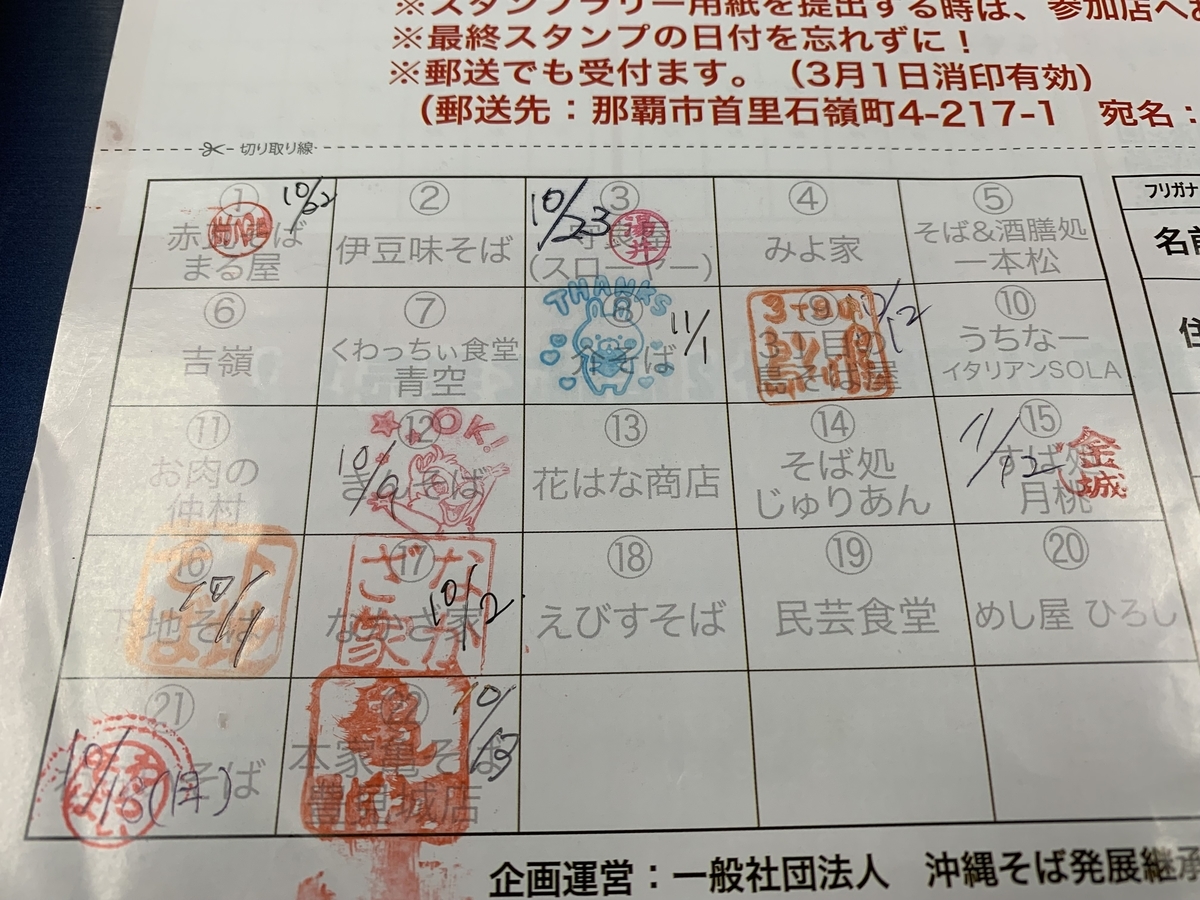 ※スタンプラリー用紙を提出する時は、参加店へお
※最終スタンプの日付を忘れずに！
※郵送でも受付ます。（3月1日消印有効）
（郵送先：那覇市首里石嶺町4-217-1　宛名：
切り取り線
① 10/22
まる屋
②
伊豆味そば
③ 10/23 湯井
(スローヤー)
④
みよ家
⑤
そば&酒膳処
一本松
フリガナ
名前
⑥
吉嶺
⑦
くわっちぃ食堂
青空
THANKS
⑧ 11/1
そば
⑨
3丁目の
島そば屋
⑩
うちなー
イタリアンSOLA
住
⑪
お肉の
仲村
OK!
⑫ 10/9
そば
⑬
花はな商店
⑭
そば処
じゅりあん
⑮ 11/12
すば処
月桃
金城
⑯
下地そば
⑰ 10/2
なかざ家
ざなか家
⑱
えびすそば
⑲
民芸食堂
⑳
めし屋 ひろし
㉑
そば
10/13(日)
㉒ 10/13
本家亀そば
豊見城店
企画運営：一般社団法人　沖縄そば発展継承